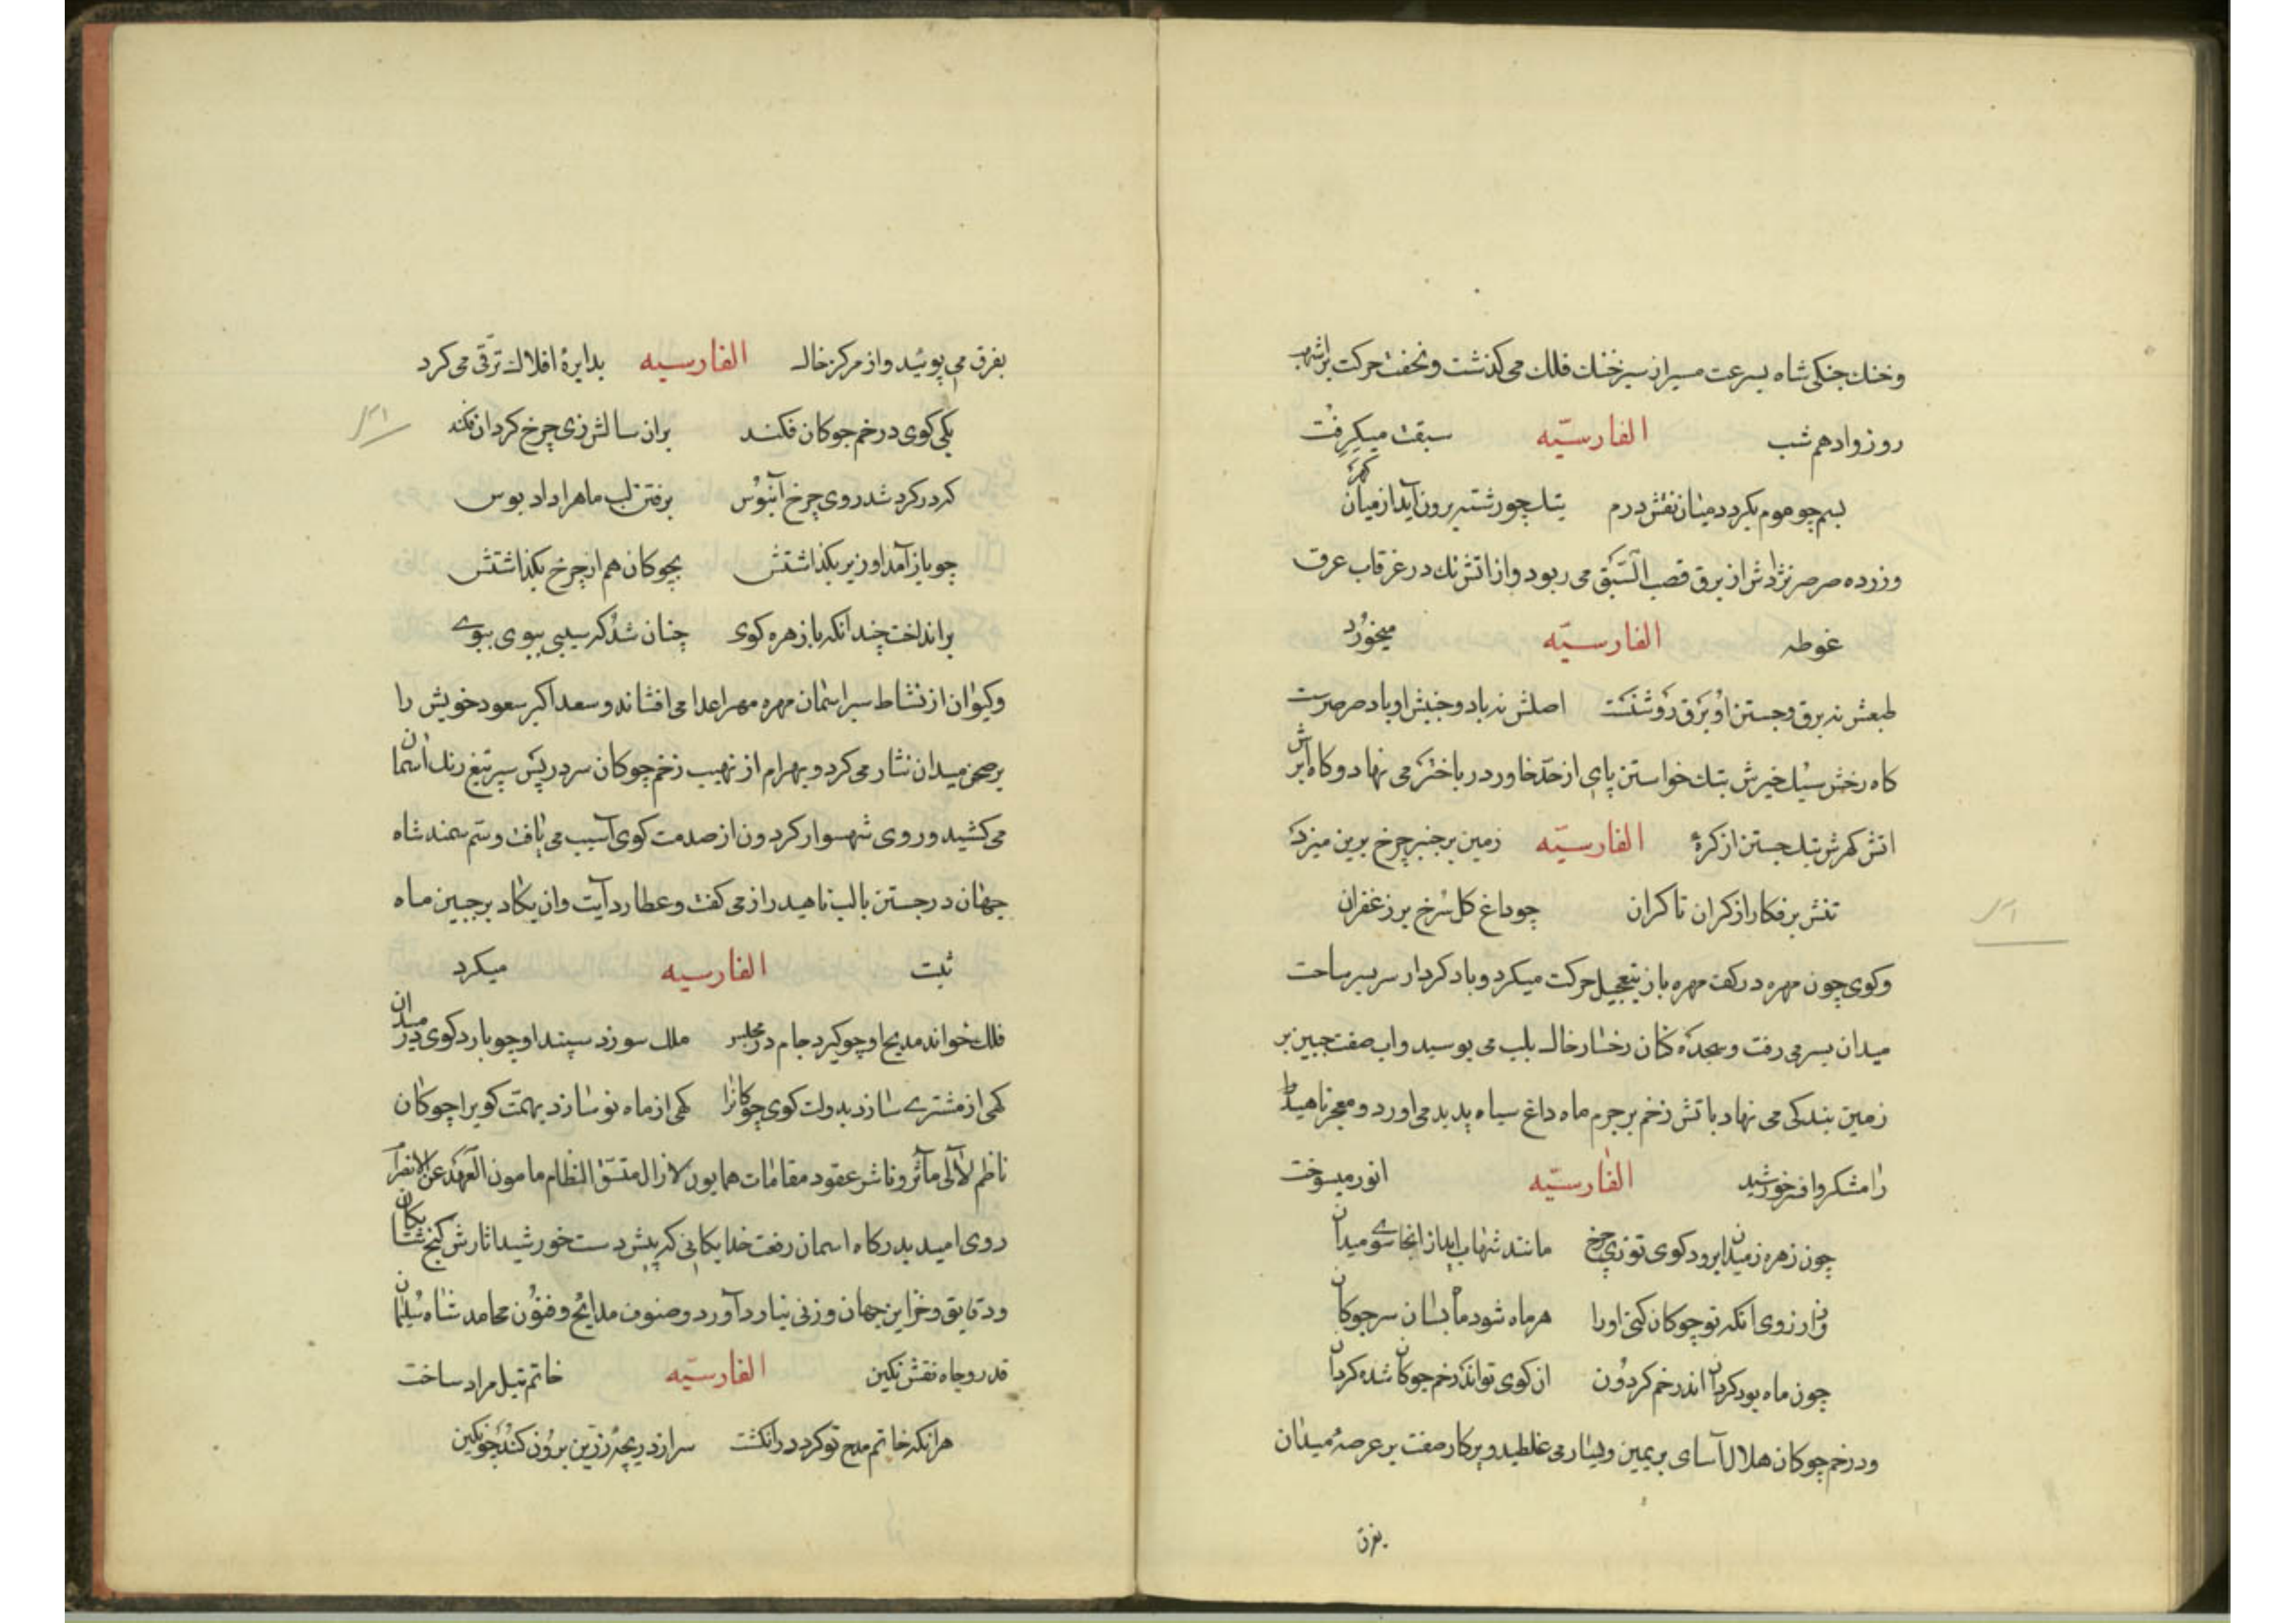 وخنك جنكی شاه بسرعت مسیر از سبزخنك فلك می كذشت و بخفت حركت بر اشهب
روز وادهم شب الفارسیّه سبقت میكرفت
بسم چو موم بكردد میان نقش درم بتك چو رشته برون آید از میان كهر
وزرده صرصر نژادش از برق قصب السّبق می ربود واز اتش تك در غرقاب عرق
غوطه الفارسیّه میخورد
طبعش نه برق وجستن او برق روشنست اصلش نه باد وجنبش او باد صرصرست
كاه رخش سیل خیزش بتك خواستن پای از حدّ خاور در باختر می نهاد وكاه ابرش
اتش كهرش بتك جستن از كرهٔ الفارسیّه زمین بر چنبر چرخ برین میزد
تنش پر فكار از كران تا كران چو داغ كل سرخ بر زعفران
وكوی چون مهره در كف مهره باز بتعجیل حركت میكرد وباد كردار سربسر ساحت
میدان بسر می رفت وسجده كنان رخسار خاك بلب می بوسید واب صفت جبین بر
زمین بندكی می نهاد باتش زخم بر جرم ماه داغ سیاه پدید می اورد ومعجر ناهید
رامشكر وافسر خورشید الفارسیّه انور میسوخت
چون زهره ز میدان برود كوی تو زی چرخ مانند شهاب اید از انجا سوی میدان
وز ارزوی انكه تو چوكان كنی اورا هر ماه شود ماه بسان سر چوكان
چون ماه بود كردان اندر خم كردون ان كوی تو اندر خم چوكان شده كردان
ودر خم چوكان هلال آسای بر یمین ویسار می غلطید وپركار صفت بر عرصهٔ میدان
بفرق
بفرق می پوئید واز مركز خاك الفارسیه بدایرهٔ افلاك ترقّی می كرد
یكی كوی در خم چوكان فكند بران سالش زی چرخ كردان فكند
كه در كرد شد روی چرخ آبنوس برفتن لب ماه را داد بوس
چو باز آمد او زیر بكذاشتش بچوكان هم از چرخ بكذاشتش
بر انداخت چندانكه با زهره كوی چنان شد كه سیبی ببوی ببوے
وكیوان از نشاط سیر اسمان مهره مهر اعدا می افشاند وسعد اكبر سعود خویش را
بر صحن میدان نثار می كرد وبهرام از نهیب زخم چوكان سر در پس سپر تیغ رنك اسمان
می كشید وروی شهسوار كردون از صدمت كوی آسیب می یافت وسم سمند شاه
جهان در جستن با لب ناهید راز می كفت وعطارد آیت وان یكاد بر جبین ماه
ثبت الفارسیه میكرد
فلك خواند مدیح او چو كیرد جام در مجلس ملك سوزد سپند او چو بازد كوی در میدان
كهی از مشتری سازد بدولت كوی چوكانرا كهی از ماه نو سازد بهمّت كویرا چوكان
ناظم لآلی مآثر وناشر عقود مقامات همایون لازال متّسق النّظام مامون العهد عن الانصرام
روی امید بدركاه اسمان رفعت خدایكانی كه پیش دست خورشید اثارش كنج شایكان
ودقایق وخزاین جهان وزنی نیارد آورد وصنوف مدایح وفنون محامد شاه سلیمان
قدر وجاه نقش نكین الفارسیّه خاتم نیل مراد ساخت
هر انكه خاتم مدح تو كرد در انكشت سر از دریچهٔ زرّین برون كند چو نكین